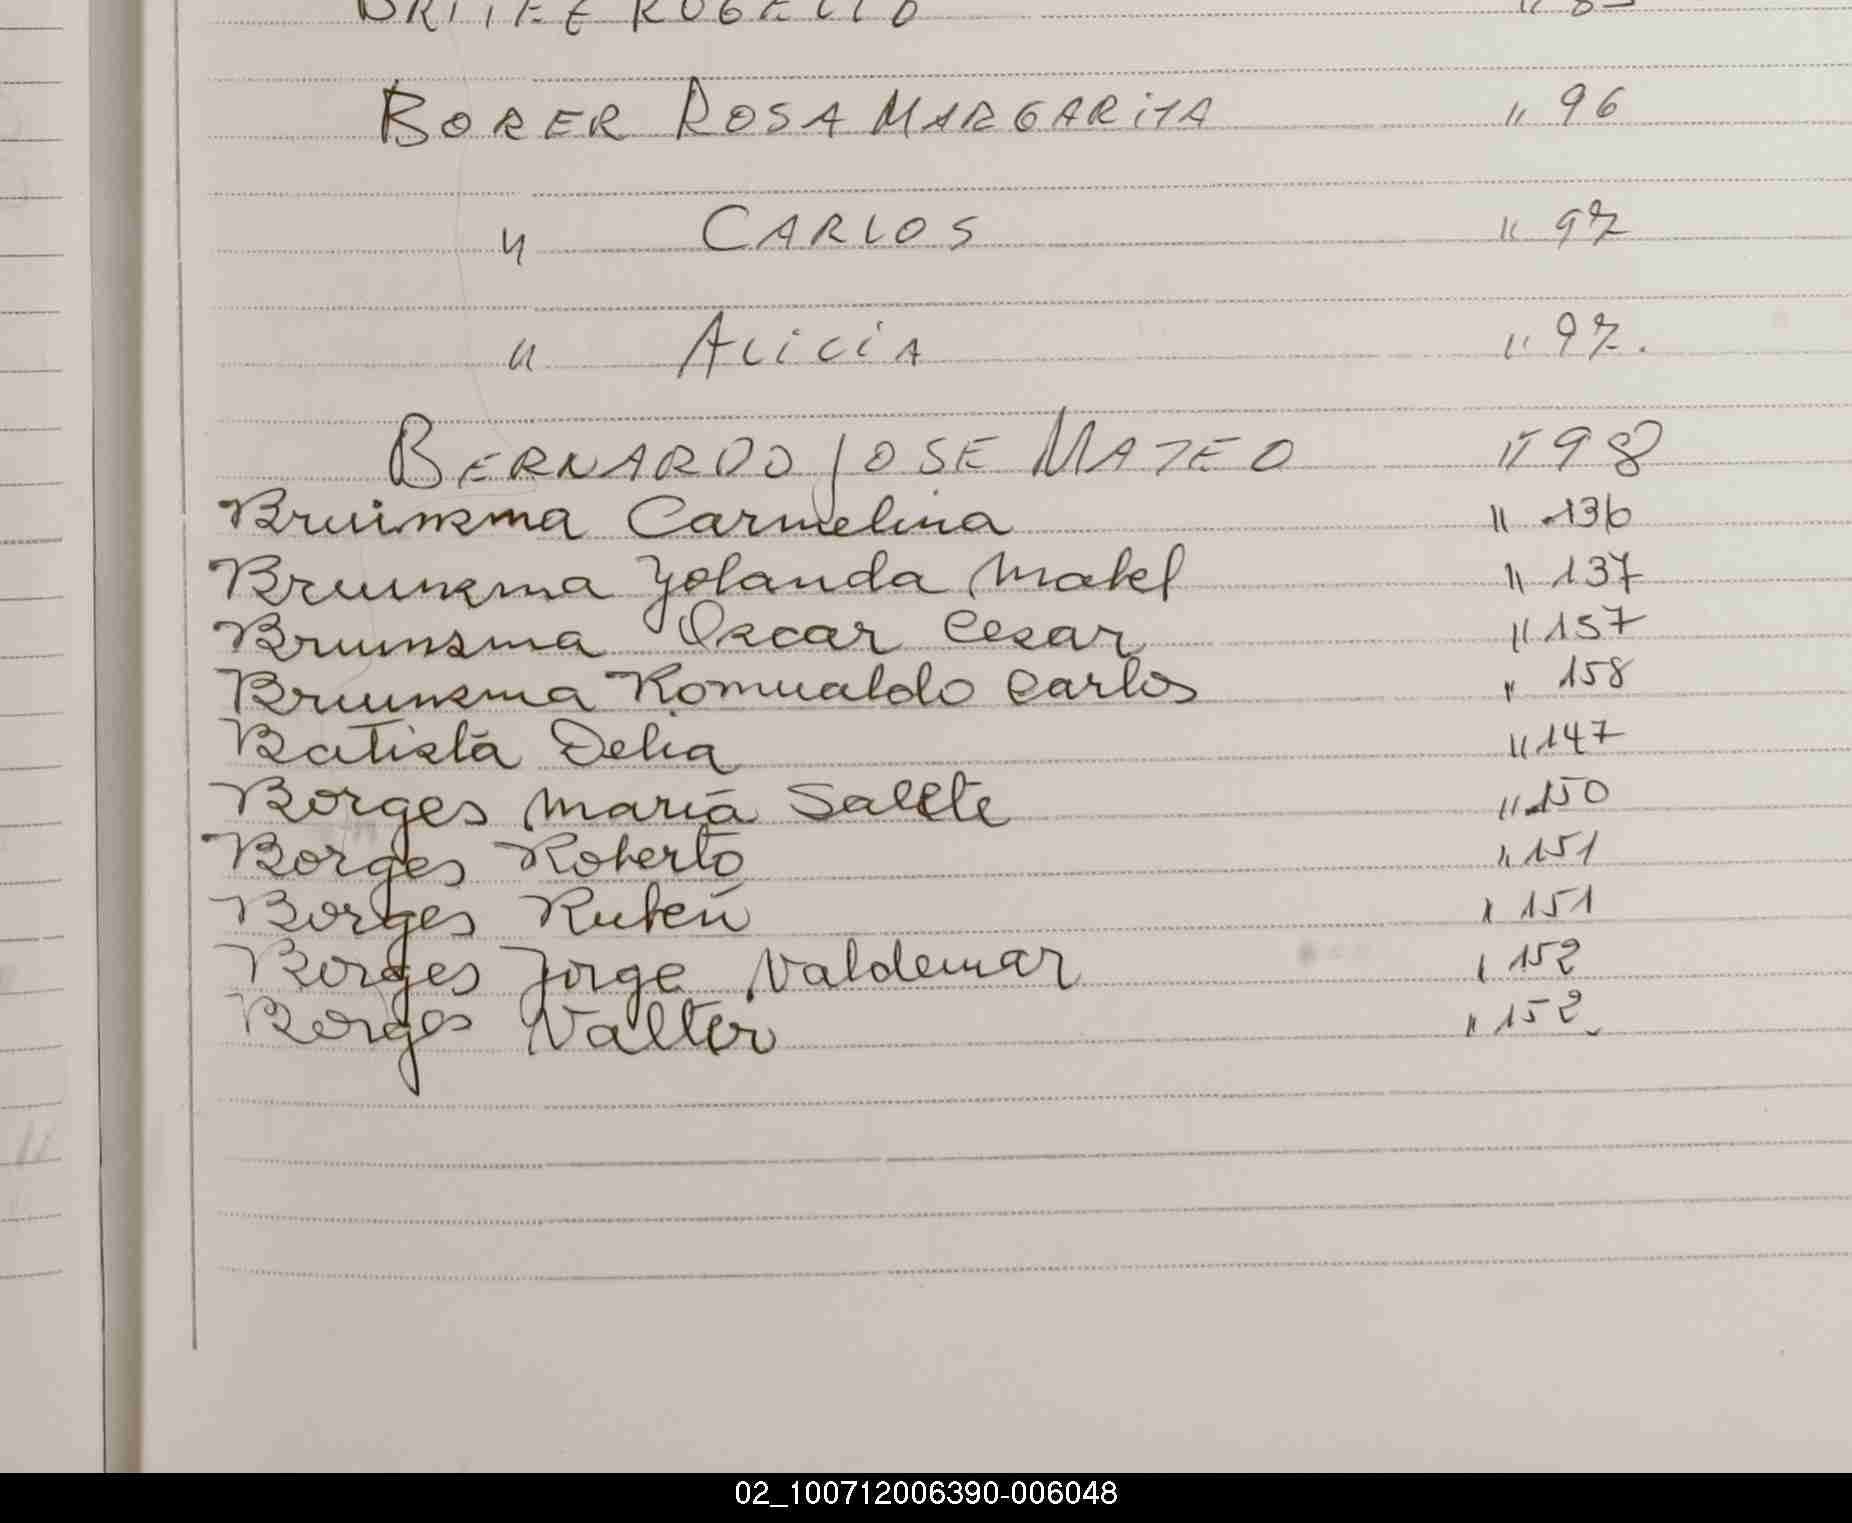 BORER ROSA MARGARITA " 96
" CARLOS " 97
" ALICIA " 97.
BERNARDO JOSE MATEO " 98
Bruinsma Carmelina " 136
Bruinsma Yolanda Mabel " 137
Bruinsma Oscar Cesar " 157
Bruinsma Romualdo Carlos " 158
Batista Delia " 147
Borges Maria Salete " 150
Borges Roberto " 151
Borges Ruben " 151
Borges Jorge Valdemar " 152
Borges Valter " 152
02_100712006390-006048